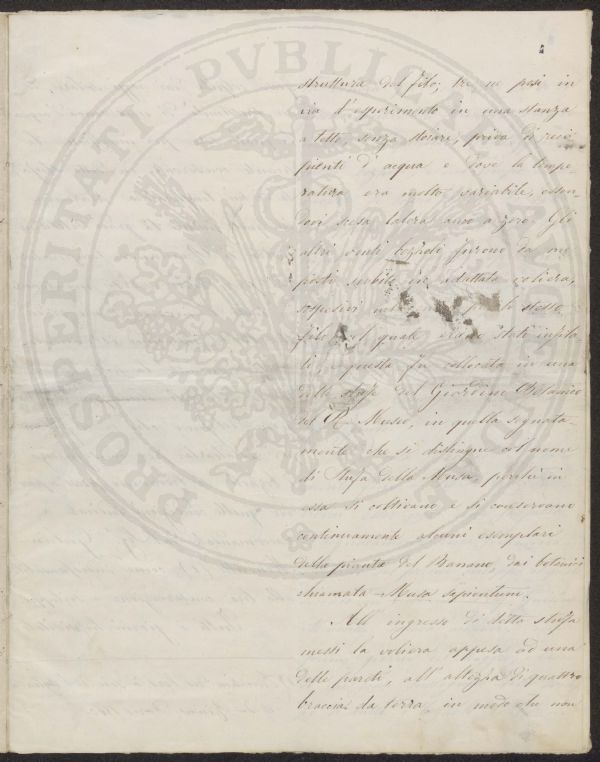 PROSPERITATI PVBLICAE
struttura del filo, tre ne posi in
via d'esperimento in una stanza
a tetto, senza stoiare, priva di reci
pienti d'acqua e dove la tempe
ratura era molto variabile, essen-
dovi scesa talora anco a zero. Gli
altri venti bozzoli furono da me
posti subito in adattata voliera,
sospesivi stesso
filo nel quale erano stati infila
ti, e questa fu collocata in una
delle stufe del Giardino Botanico
del R. Museo, in quella segnata-
mente che si distingue col nome
di Stufa della Musa, perchè in
essa si coltivano e si conservano
continuamente alcuni esemplari
della pianta del Banano, dai botanici
chiamata Musa sapientum.
All'ingresso di detta stufa
messi la voliera appesa ad una
delle pareti, all'altezza di quattro
braccia da terra, in modo che non